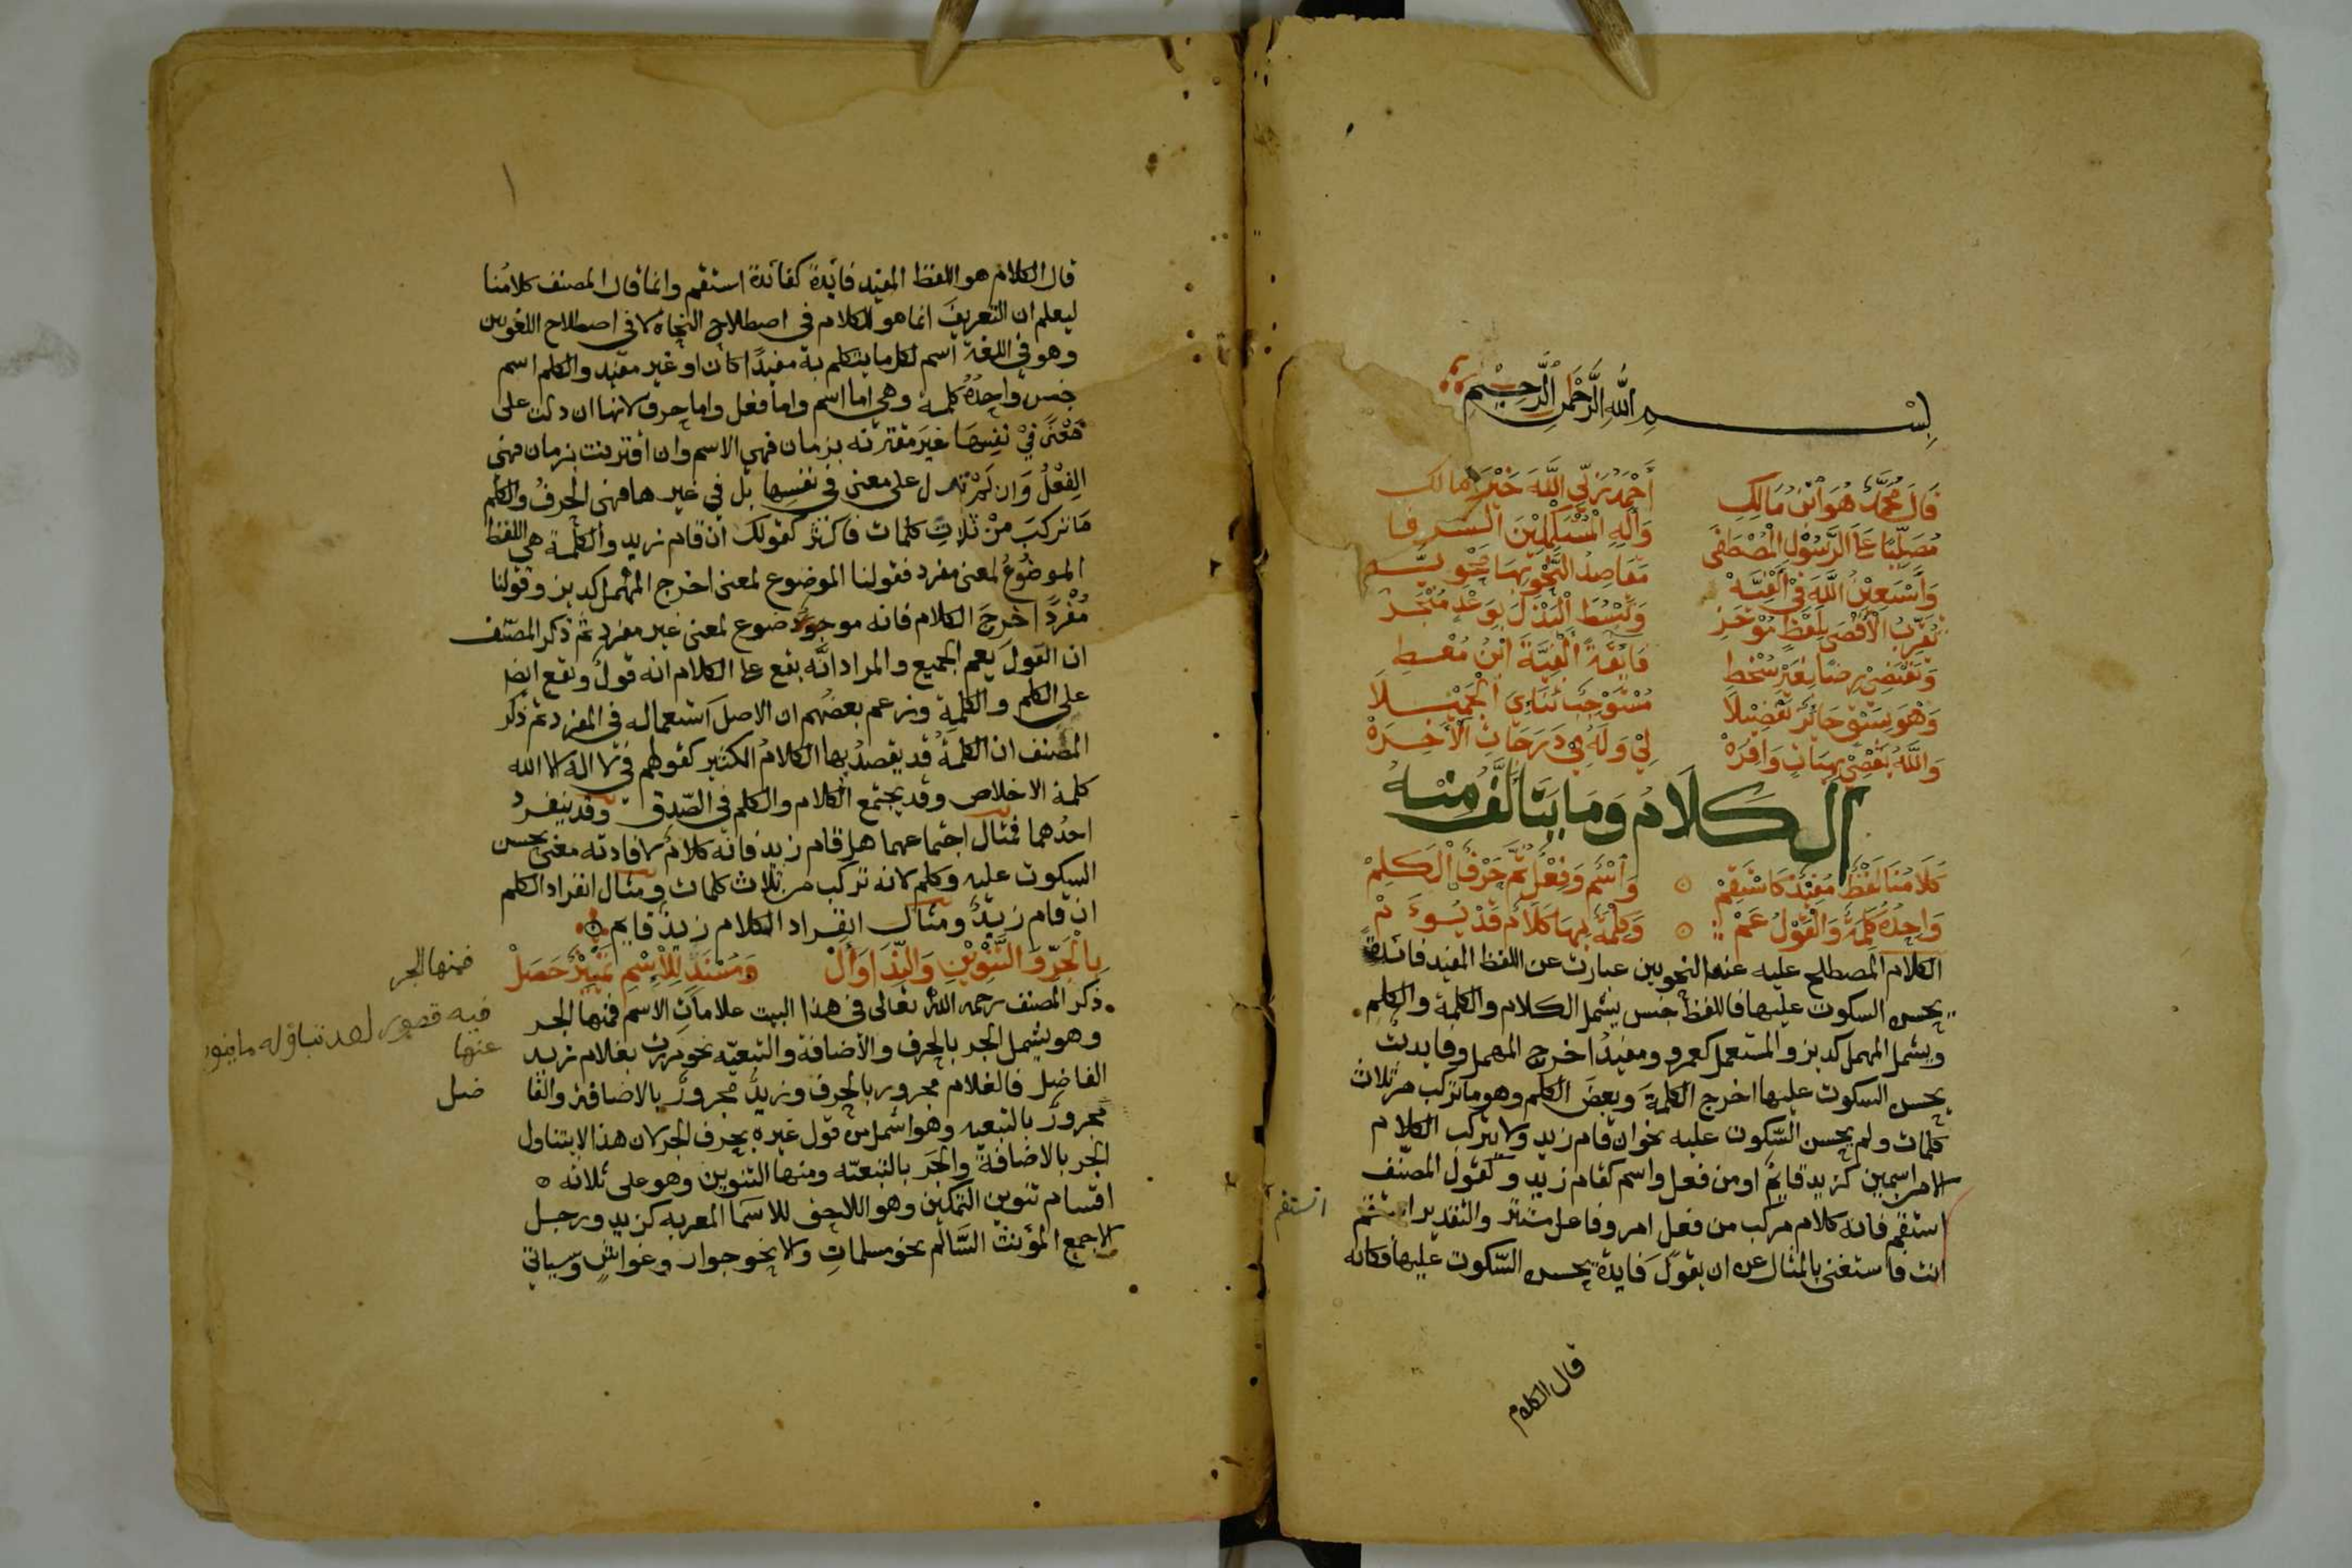 بِسْمِ اللَّهِ الرَّحْمٰنِ الرَّحِيْمِ
قَالَ مُحَمَّدٌ هُوَ ابْنُ مَالِكِ أَحْمَدُ رَبِّي اللَّهَ خَيْرَ مَالك
مُصَلِّيًا عَلَى الرَّسُوْلِ الْمُصْطَفَى وَآلِهِ الْمُسْتَكْمِلِيْنَ الشرفا
وَأَسْتَعِيْنُ اللَّهَ فِيْ أَلْفِيَّهْ مَقَاصِدُ النَّحْوِ بِهَا مَحْوِيَّه
تُقَرِّبُ الْأَقْصَى بِلَفْظٍ مُوْجَزِ وَتَبْسُطُ الْبَذْلَ بِوَعْدٍ مُنْجَزِ
وَتَقْتَضِيْ رِضًا بِغَيْرِ سُخْطِ فَايِقَةً أَلْفِيَّةَ ابْنِ مُعْطِ
وَهْوَ بِسَبْقٍ حَائِزٌ تَفْضِيْلَا مُسْتَوْجِبٌ ثَنَاءِيَ الْجَمِيْلَا
وَاللَّهُ يَقْضِيْ بِهِبَاتٍ وَافِرَهْ لِيْ وَلَهُ فِيْ دَرَجَاتِ الْآخِرَهْ
الكَلَامُ وَمَا يَتَأَلَّفُ مِنْهُ
كَلَامُنَا لَفْظٌ مُفِيْدٌ كَاسْتَقِمْ ۞ وَاسْمٌ وَفِعْلٌ ثُمَّ حَرْفٌ الْكَلِمْ
وَاحِدُهُ كَلِمَةٌ وَالْقَوْلُ عَمْ ۞ وَكِلْمَةٌ بِهَا كَلَامٌ قَدْ يُؤَمْ
الكلام المصطلح عليه عند النحويين عبارت عن اللفظ المفيد فائدة
يحسن السكوت عليها فاللفظ جنس يشمل الكلام والكلمة والكلم
ويشمل المهمل كديز والمستعمل كعمرو ومفيدُ اخرج المهمل وفايدت
يحسن السكوت عليها اخرج الكلمة وبعض الكلم وهو ما تركب من ثلاث
كلمات ولم يحسن السّكوت عليه نحو ان قام زيد ولا يتركب الكلام
الا من اسمين كزيد قايمٌ او من فعل واسم كقام زيد وكقول المصنّف
استقم فانه كلام مركب من فعل امر وفاعل مستتر والتقدير استقم
استقم
انت فاستغنى بالمثال عن ان يقول فايدة يحسن السّكوت عليها فكانه
قال الكلام
قال الكلام هو اللفظ المفيد فايدة كفائدة استقم وانما قال المصنف كلامُنا
ليعلم ان التعريف انما هو للكلام في اصطلاح النحاة لا في اصطلاح اللغويين
وهو في اللغة اسم لكل ما يتكلم به مفيدًا كان او غير مفيد والكلم اسم
جنس واحدُهُ كلمة وهي اما اسم واما فعل واما حرف لانها ان دلت على
مَعْنًى فيْ نفسِهَا غيرَ مقترنه بزمان فهي الاسم وان اقترنت بزمان فهي
الفِعْلُ وَان لَمْ تدل على معنى في نفسِها بل في غيرها فهي الحرفُ والكلم
مَا تركبَ مِنْ ثلاثِ كلمات فاكثر كقولك ان قام زيد والكلمة هي اللفظ
الموضُوعُ لمعنى مفرد فقولنا الموضوع لمعنى اخرج المهمل كديز وقولنا
مُفْردٌ اخرجَ الكلام فانه موضوع لمعنى غير مفردٍ ثم ذكر المصنّف
ان القولَ يعم الجميع والمراد انَّه يقع على الكلام انه قولٌ ويقع ايضا
على الكلم والكلمة وزعم بعضُهم ان الاصل استعماله في المفرد ثم ذكر
المصنف ان الكلمةُ قد يقصدُ بها الكلامُ الكثير كقولهم في لا اله الا الله
كلمة الاخلاص وقد يجتمع الكلام والكلم في الصّدق وقد ينفرد
احدُهما فمثال اجتماعهما هل قام زيد فانّه كلامٌ لافادته معنى يحسن
السكوت عليه وكلم لانه تركب من ثلاث كلمات ومثال انفراد الكلم
ان قام زيدٌ ومثال انفراد الكلام زيدٌ قايم ۞
بِالْجَرِّ وَالتَّنْوِيْنِ وَالنِّدَا وَأَلْ وَمُسْنَدٍ لِلْاِسْمِ تَمْيِيْزٌ حَصَلْ
ذكر المصنف رحمه اللهُ تعالى في هذا البيت علاماتِ الاسم فمنها الجر
فمنها الجر
وهو يشمل الجر بالحرف والاضافة والتبعيّه نحو مررت بغلام زيد
فيه قصور
عنها
الفاضل فالغلام مجرور بالحرف وزيدٌ مجرورٌ بالاضافة والفا
ضل
مجرورٌ بالتبعيه وهو اشمل من قول غيره بحرف الجر لان هذا لا يتناول
الجر بالاضافة والجر بالتبعيّه ومنها التنوين وهو على ثلاثه
اقسام تنوين التمكين وهو اللاحق للاسما المعربه كزيد ورجل
الا جمع المؤنث السَّالم نحو مسلماتٍ والا نحو جوار وغواشٍ وسياتي